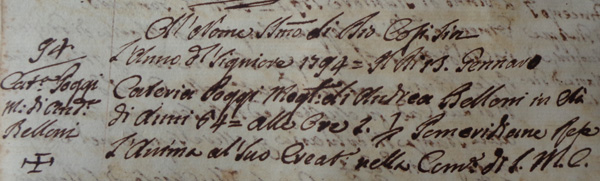 94
Cat.ª Poggi
m. di And.ª
Belloni
Al Nome SSmo di Dio Cosi Sia
L'Anno d'Signiore 1794 = A di 13. Gennaro
Cateria Poggi Mogl: di Andrea Belloni in Età
di Anni 64 = alle Ore 2. 1/2 Pomeridiane Rese
l'Anima al Suo Creat: nella Com.e di S. M. C.